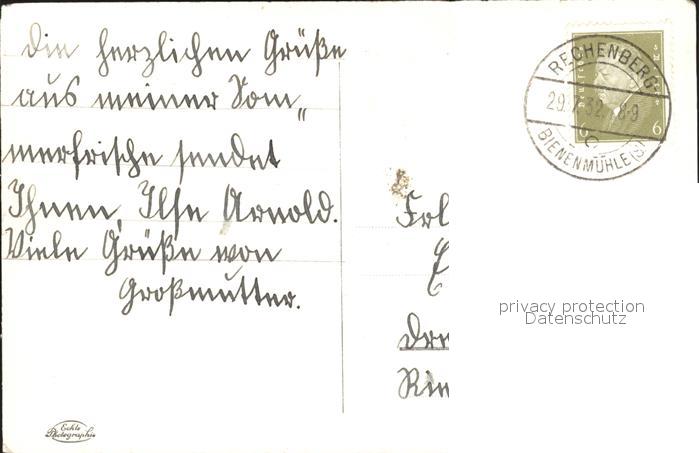 Die herzlichen Grüße
aus meiner Som„
merfrische sendet
Ihnen, Ilse Arnold.
Viele Grüße von
Großmutter.
Echte
Photographie
RECHENBERG-
29. 7. 32. 8-9
c
BIENENMÜHLE (S)
Deutsches
6 6
Frl
E
Dre
Rin
privacy protection
Datenschutz